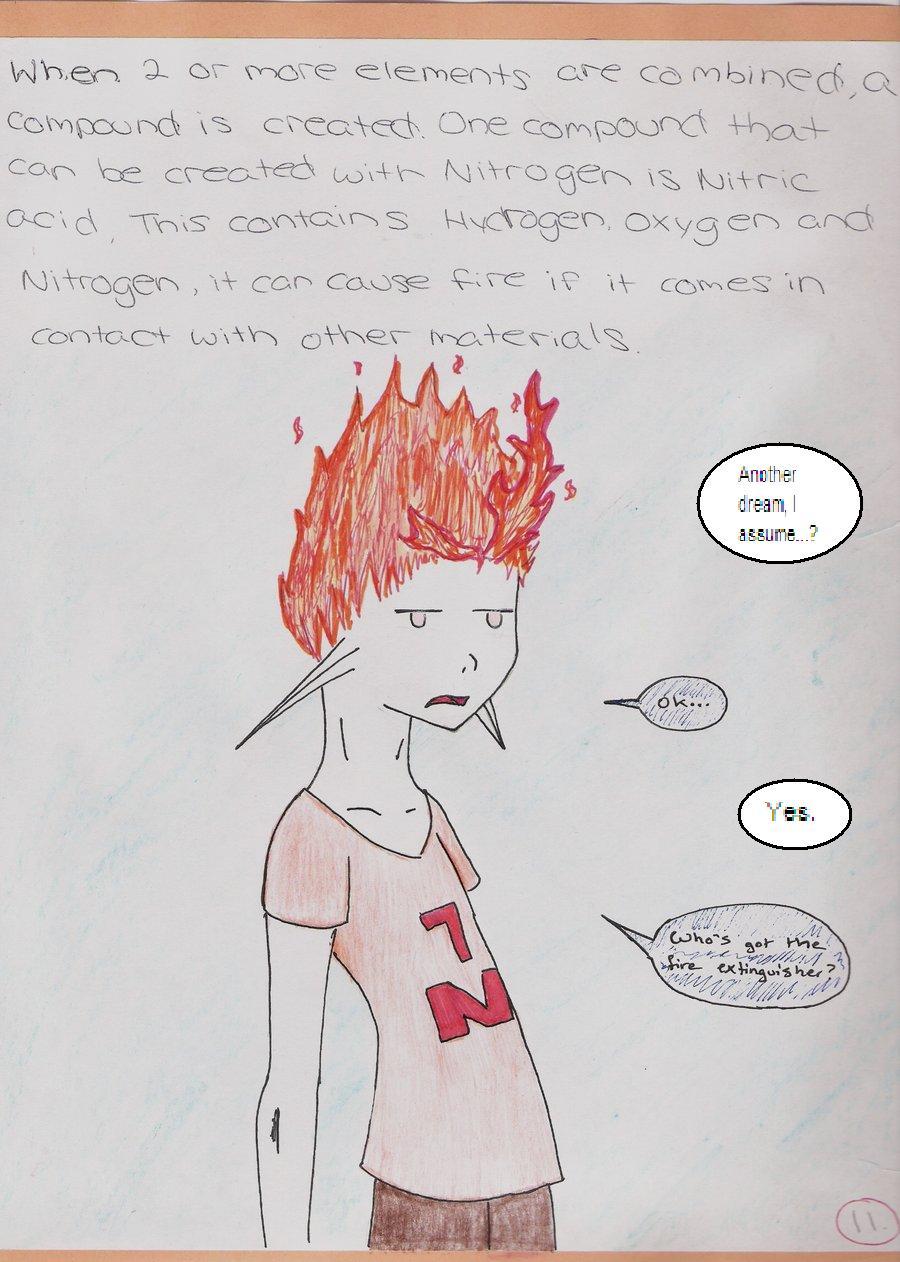 When 2 or more elements are combined, a
compound is created. One compound that
can be created with Nitrogen is Nitric
acid, This contains Hydrogen, oxygen and
Nitrogen, it can cause fire if it comes in
contact with other materials.
Another
dream, I
assume...?
OK...
Yes.
Who's got the
fire extinguisher?
7
N
11.